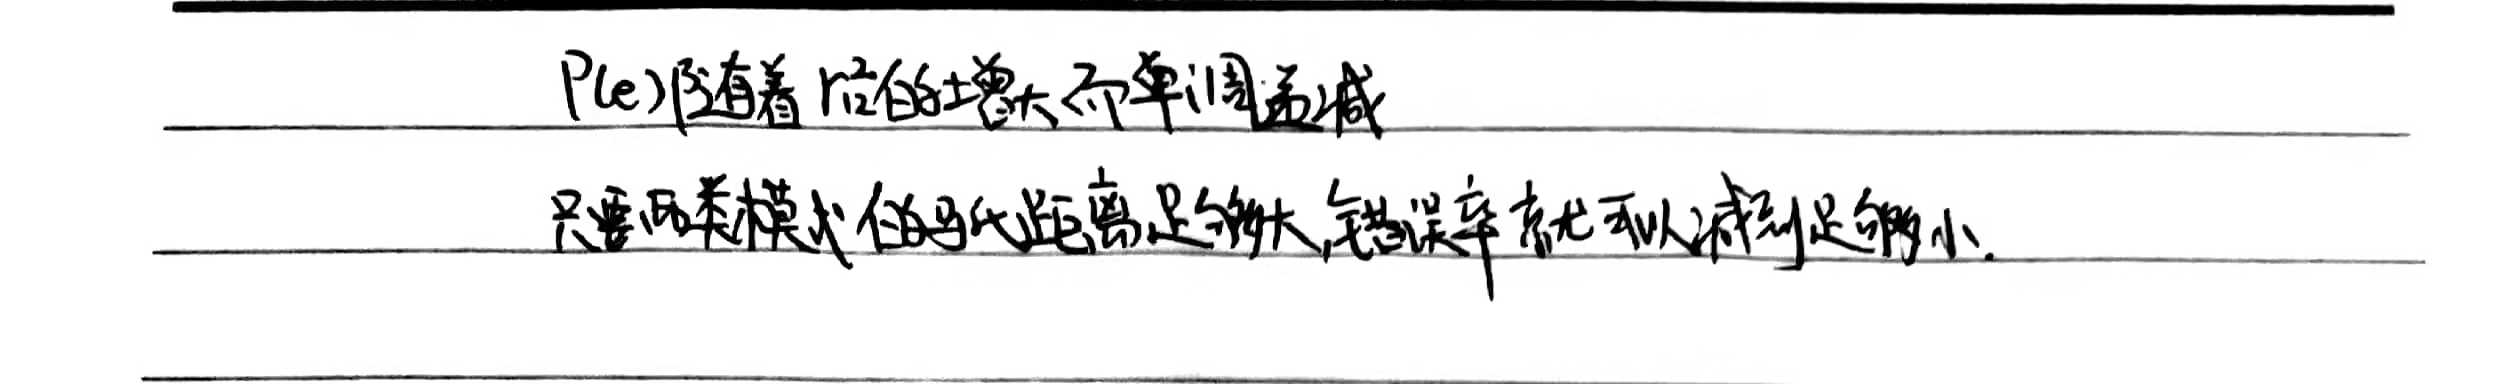 P(e)随着r₁₂²的增大而单调递减
只要两类模式的马氏距离足够大,错误率就可以减到足够小.